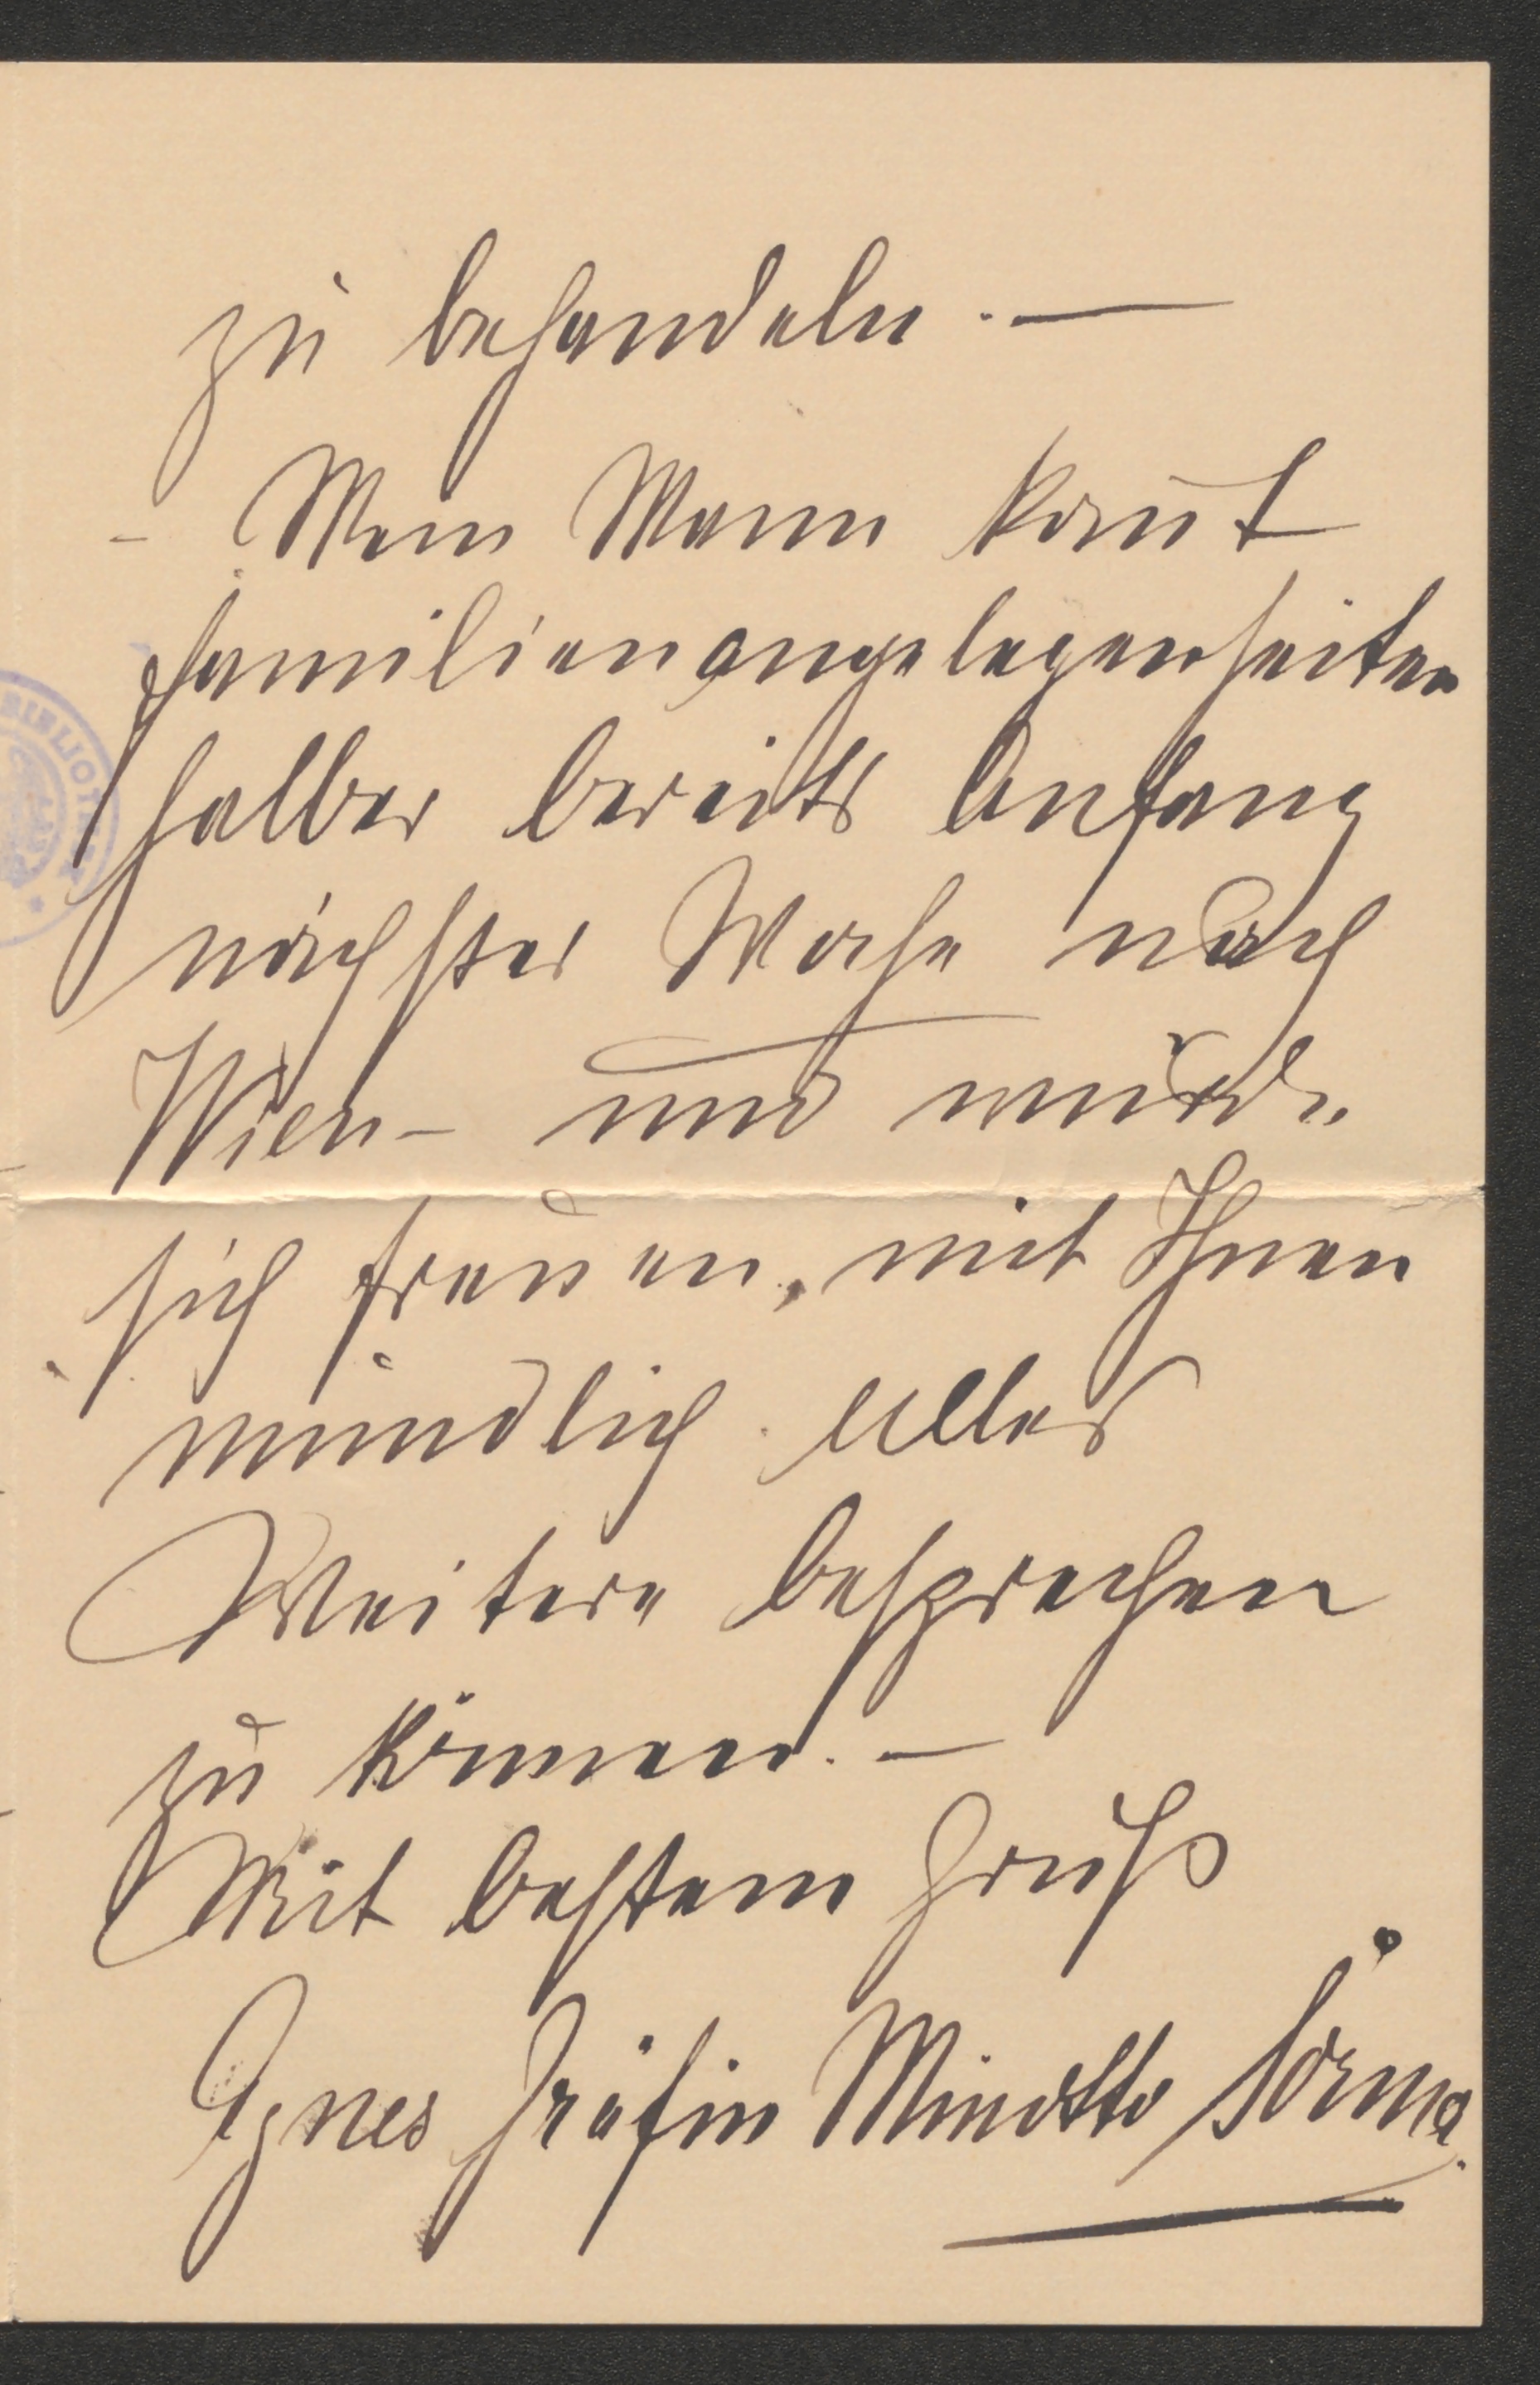 zu behandeln. —
- Mein Mann kom̄t
Familienangelegenheiten
halber bereits Anfang
nächster Woche nach
Wien - und würde
sich freuen, mit Ihnen
mündlich alles
Weitere besprechen
zu können. —
Mit bestem Gruß
Agnes Gräfin Minotto Sorma.
BIBLIOT